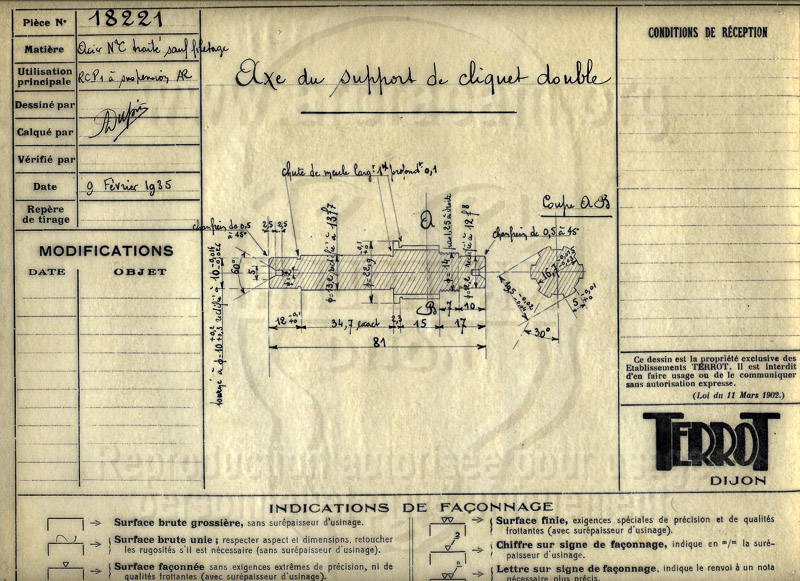 Pièce N° 18221
Matière Acier N°C traité sauf filetage
Utilisation principale R.C.P.1 à suspension AR
Dessiné par
Calqué par
Vérifié par
Date 9 Février 1935
Repère de tirage
MODIFICATIONS
DATE OBJET
Axe du support de cliquet double
chute de meule larg: 1 profond 0,1
A
Coupe A B
chanfrein de 0,5 à 45°
2,5
chanfrein de 0,5 à 45°
60°
B
7 10
16,7
5
30°
12
34,7 exact
2,3
15
17
81
CONDITIONS DE RÉCEPTION
Ce dessin est la propriété exclusive des
Etablissements TERROT. Il est interdit
d'en faire usage ou de le communiquer
sans autorisation expresse.
(Loi du 11 Mars 1902.)
TERROT
DIJON
INDICATIONS DE FAÇONNAGE
Surface brute grossière, sans surépaisseur d'usinage.
Surface brute unie ; respecter aspect et dimensions, retoucher
les rugosités s'il est nécessaire (sans surépaisseur d'usinage).
Surface façonnée sans exigences extrêmes de précision, ni de
qualités frottantes (avec surépaisseur d'usinage).
Surface finie, exigences spéciales de précision et de qualités
frottantes (avec surépaisseur d'usinage).
3
Chiffre sur signe de façonnage, indique en =/= la surépaisseur d'usinage.
Lettre sur signe de façonnage, indique le renvoi à un nota
nécessaire plus précis.